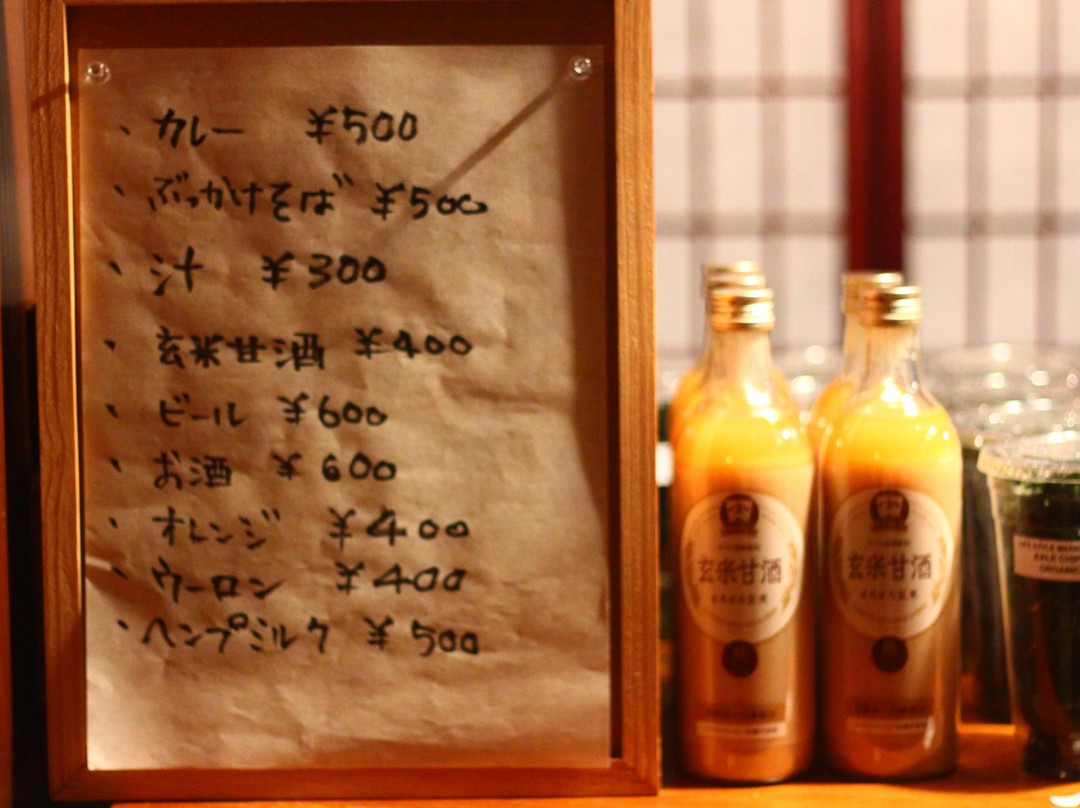 ・カレー ¥500
・ぶっかけそば ¥500
・汁 ¥300
・玄米甘酒 ¥400
・ビール ¥600
・お酒 ¥600
・オレンジ ¥400
・ウーロン ¥400
・ヘンプミルク ¥500
玄米甘酒
玄米甘酒
KALE CHIPS
ORGANIC